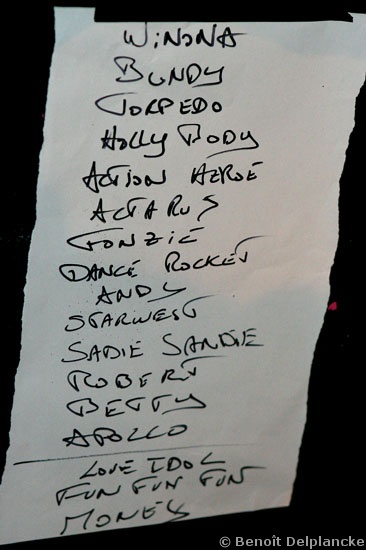 WINONA
BUNDY
TORPEDO
HOLLY BODY
ACTION HEROE
ACTARUS
FONZIE
DANCE ROCKET
ANDY
STARWEST
SADIE SANDIE
ROBERT
BETTY
APOLLO
LOVE IDOL
FUN FUN FUN
MONEY
© Benoît Delplancke